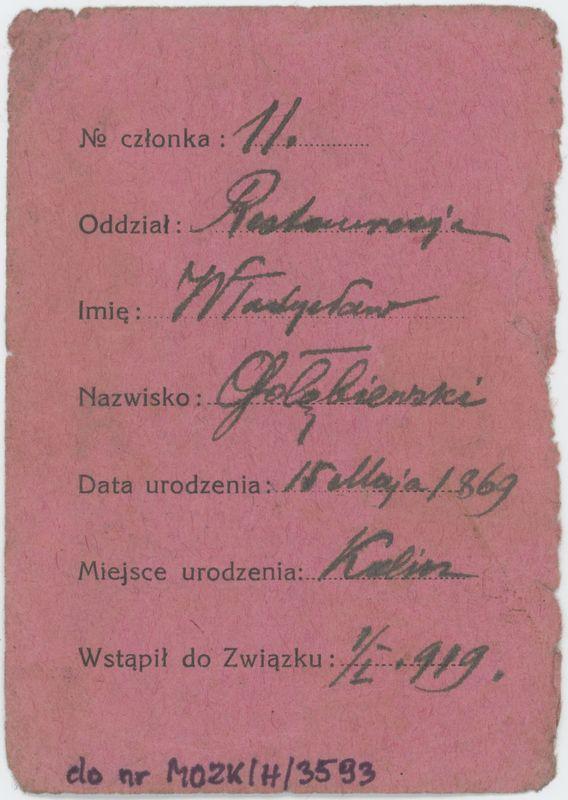 № członka: 11.
Oddział: Restauracyja
Imię: Władysław
Nazwisko: Gołębiewski
Data urodzenia: 15 Maja 1869
Miejsce urodzenia: Kalisz
Wstąpił do Związku: 1/I .919.
do nr MOZK/H/3593